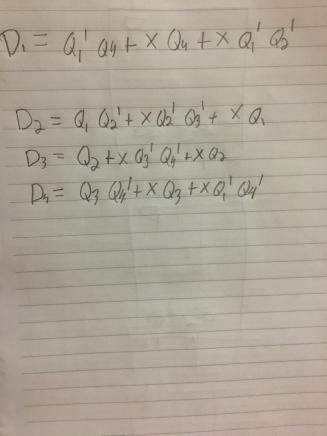 D₁ = Q₁' Q₄ + X Q₄ + X Q₁' Q₂'
D₂ = Q₁ Q₂' + X Q₂' Q₃' + X Q₁
D₃ = Q₂ + X Q₃' Q₄' + X Q₂
D₄ = Q₃ Q₄' + X Q₃ + X Q₁' Q₄'